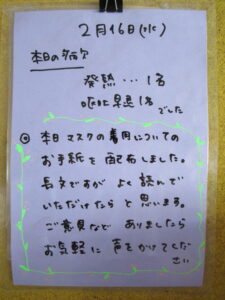 2月16日(水)
本日の病欠
発熱…1名
嘔吐早退1名
でした
◎ 本日 マスクの着用についての
お手紙を配布しました。
長文ですが よく読んで
いただけたらと思います。
ご意見など ありましたら
お気軽に 声をかけてくだ
さい